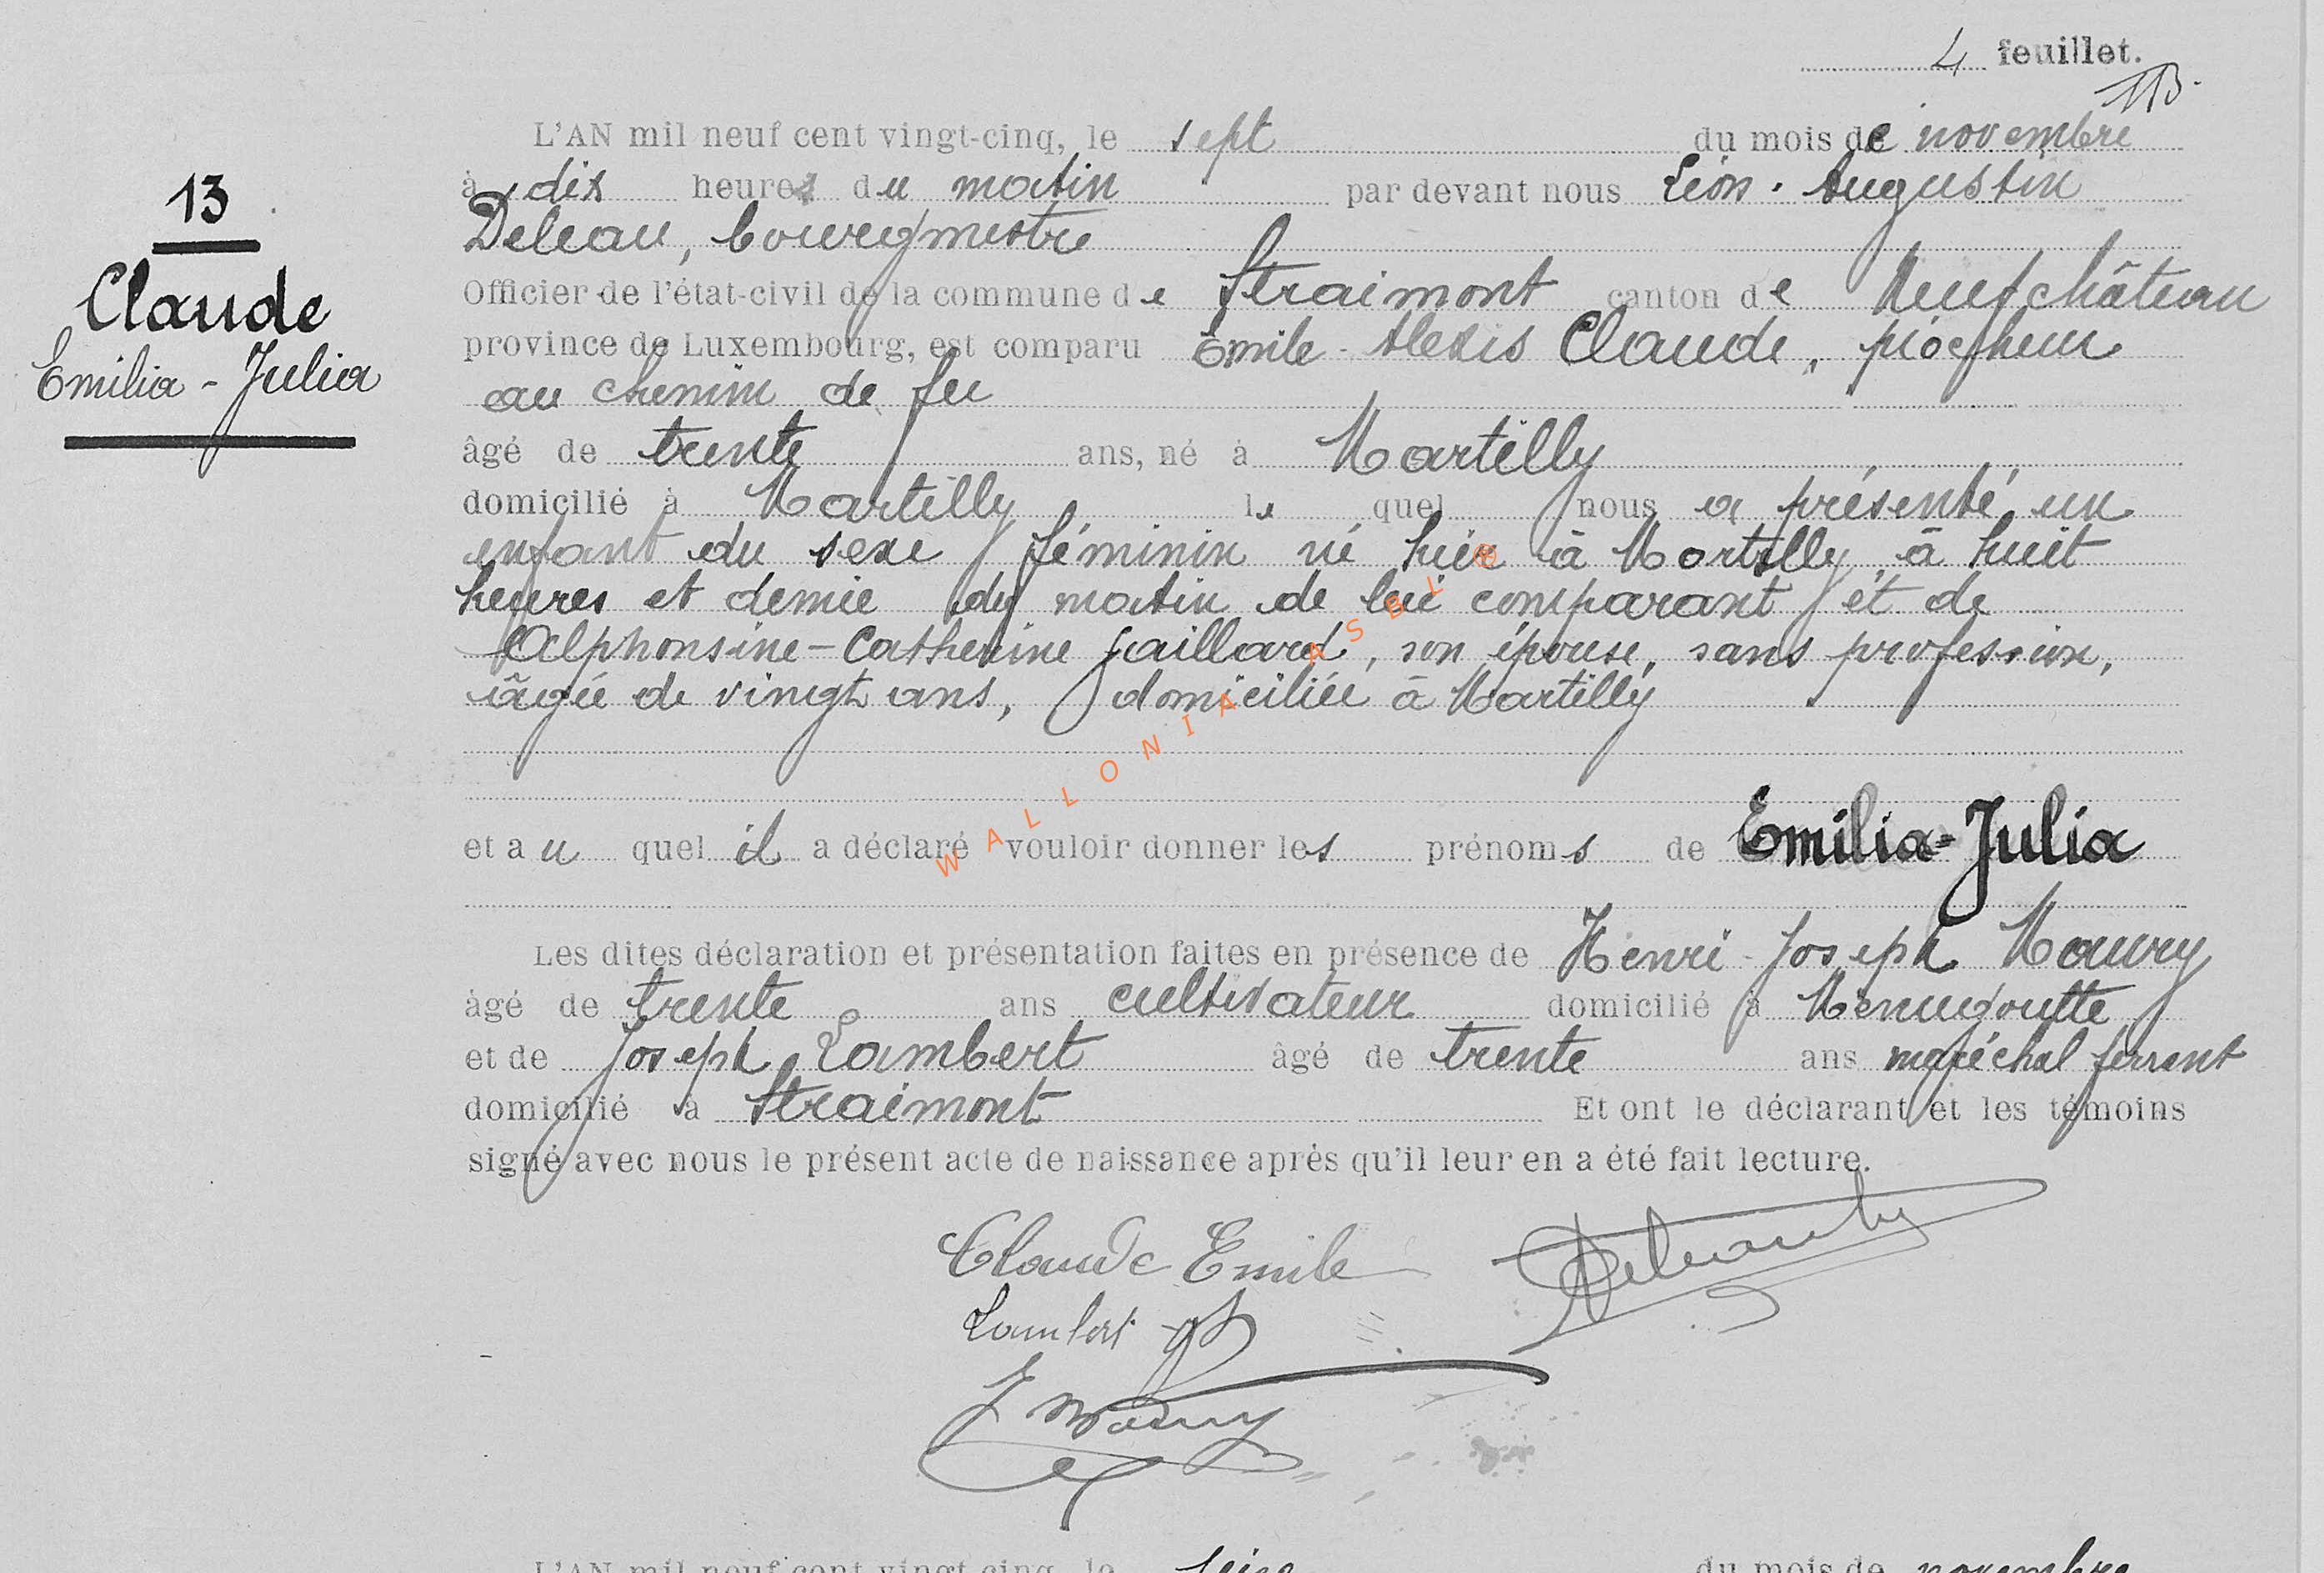 4 feuillet.
L'AN mil neuf cent vingt-cinq, le sept du mois de novembre
13
à dix heures du matin par devant nous Léon-Augustin
Deleau, bourgmestre
Claude
Officier de l'état-civil de la commune de Straimont canton de Neufchâteau
Emilia-Julia
province de Luxembourg, est comparu Emile-Alexis Claude, piocheur
au chemin de fer
âgé de trente ans, né à Martilly
domicilié à Martilly lequel nous a présenté un
enfant du sexe féminin né hier à Martilly, à huit
heures et demie du matin de lui comparant et de
Alphonsine-Catherine Jaillard, son épouse, sans profession,
âgée de vingt ans, domiciliée à Martilly
et au quel il a déclaré vouloir donner les prénoms de Emilia-Julia
Les dites déclaration et présentation faites en présence de Henri-Joseph Maury
âgé de trente ans cultivateur domicilié à Menugoutte
et de Joseph Lambert âgé de trente ans maréchal ferrant
domicilié à Straimont Et ont le déclarant et les témoins
signé avec nous le présent acte de naissance après qu'il leur en a été fait lecture.
Claude Emile
Lambert
J Maury
WALLONIA ASBL ®
L'AN mil neuf cent vingt-cinq, le seize du mois de novembre